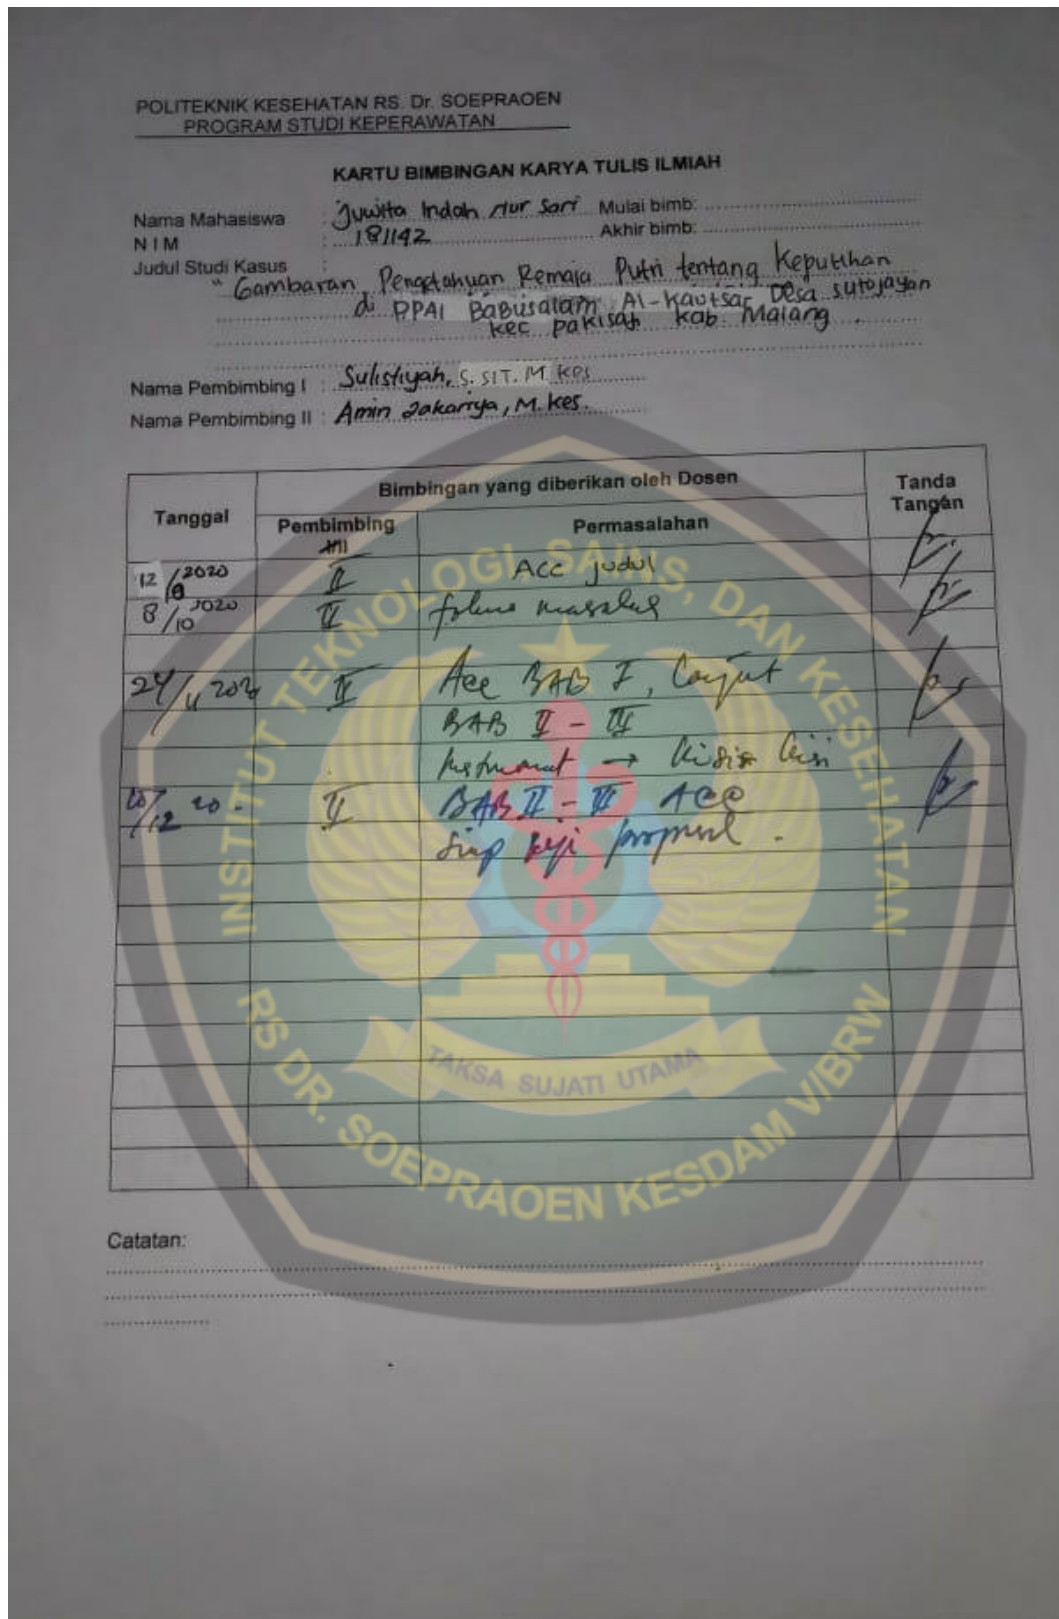 POLITEKNIK KESEHATAN RS. Dr. SOEPRAOEN
PROGRAM STUDI KEPERAWATAN
KARTU BIMBINGAN KARYA TULIS ILMIAH
Nama Mahasiswa : Juwita Indah Nur Sari Mulai bimb:
N I M : 181142 Akhir bimb:
Judul Studi Kasus :
" Gambaran Pengetahuan Remaja Putri tentang Keputihan
di PPAI Babusalam Al-Kautsar Desa sutojayan
kec pakisaji kab Malang .
Nama Pembimbing I : Sulistiyah, S. SIT. M. Kes
Nama Pembimbing II : Amin Zakariya, M. Kes.
Tanggal Bimbingan yang diberikan oleh Dosen Tanda Tangan
Pembimbing I/II Permasalahan
12/ 2020 II Acc judul
8/10 2020 II
24/11 2020 II Acc BAB I, Lanjut
BAB II - III
→ kisi
/12 20. II BAB II - III ACC
Siap uji proposal .
INSTITUT TEKNOLOGI, SAINS, DAN KESEHATAN
RS DR. SOEPRAOEN KESDAM V/BRW
TAKSA SUJATI UTAMA
Catatan: